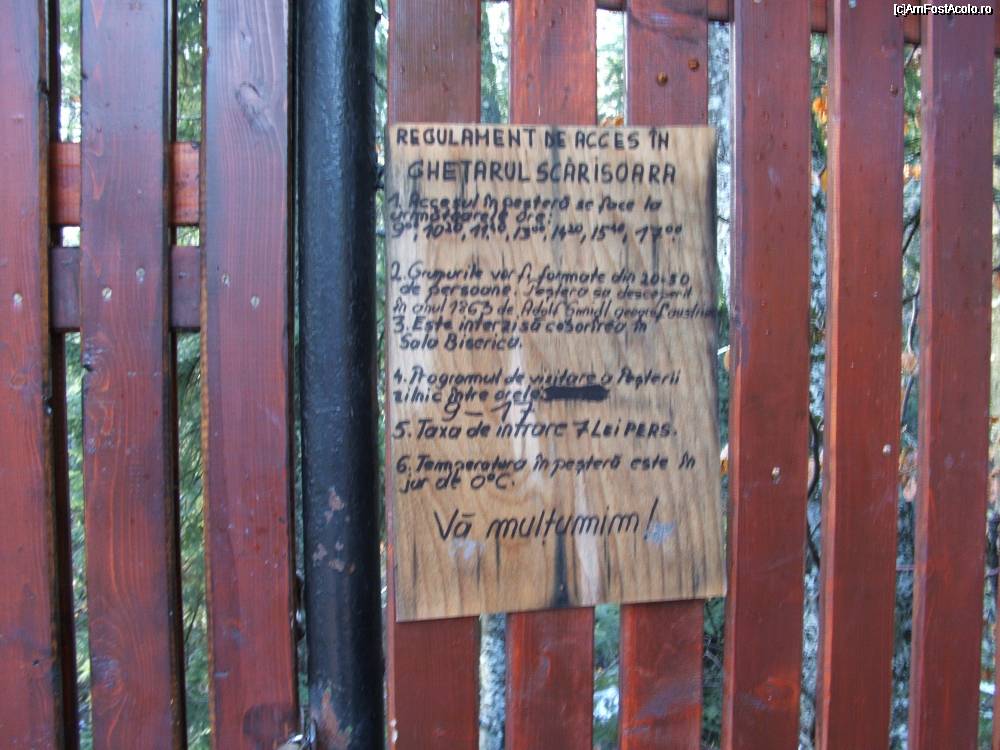 (c)AmFostAcolo.ro
REGULAMENT DE ACCES ÎN
GHEȚARUL SCĂRIȘOARA
1. Accesul în peșteră se face la
următoarele ore:
9⁰⁰, 10²⁰, 11⁴⁰, 13⁰⁰, 14²⁰, 15⁴⁰, 17⁰⁰
2. Grupurile vor fi formate din 20-50
de persoane. Peștera sa descoperit
în anul 1863 de Adolf Smidl geograf austriac
3. Este interzisă coborîrea în
Sala Biserica.
4. Programul de vizitare a Peșterii
zilnic între orele:
9 - 17
5. Taxa de intrare 7 Lei PERS.
6. Temperatura în peșteră este în
jur de 0°C.
Vă mulțumim!